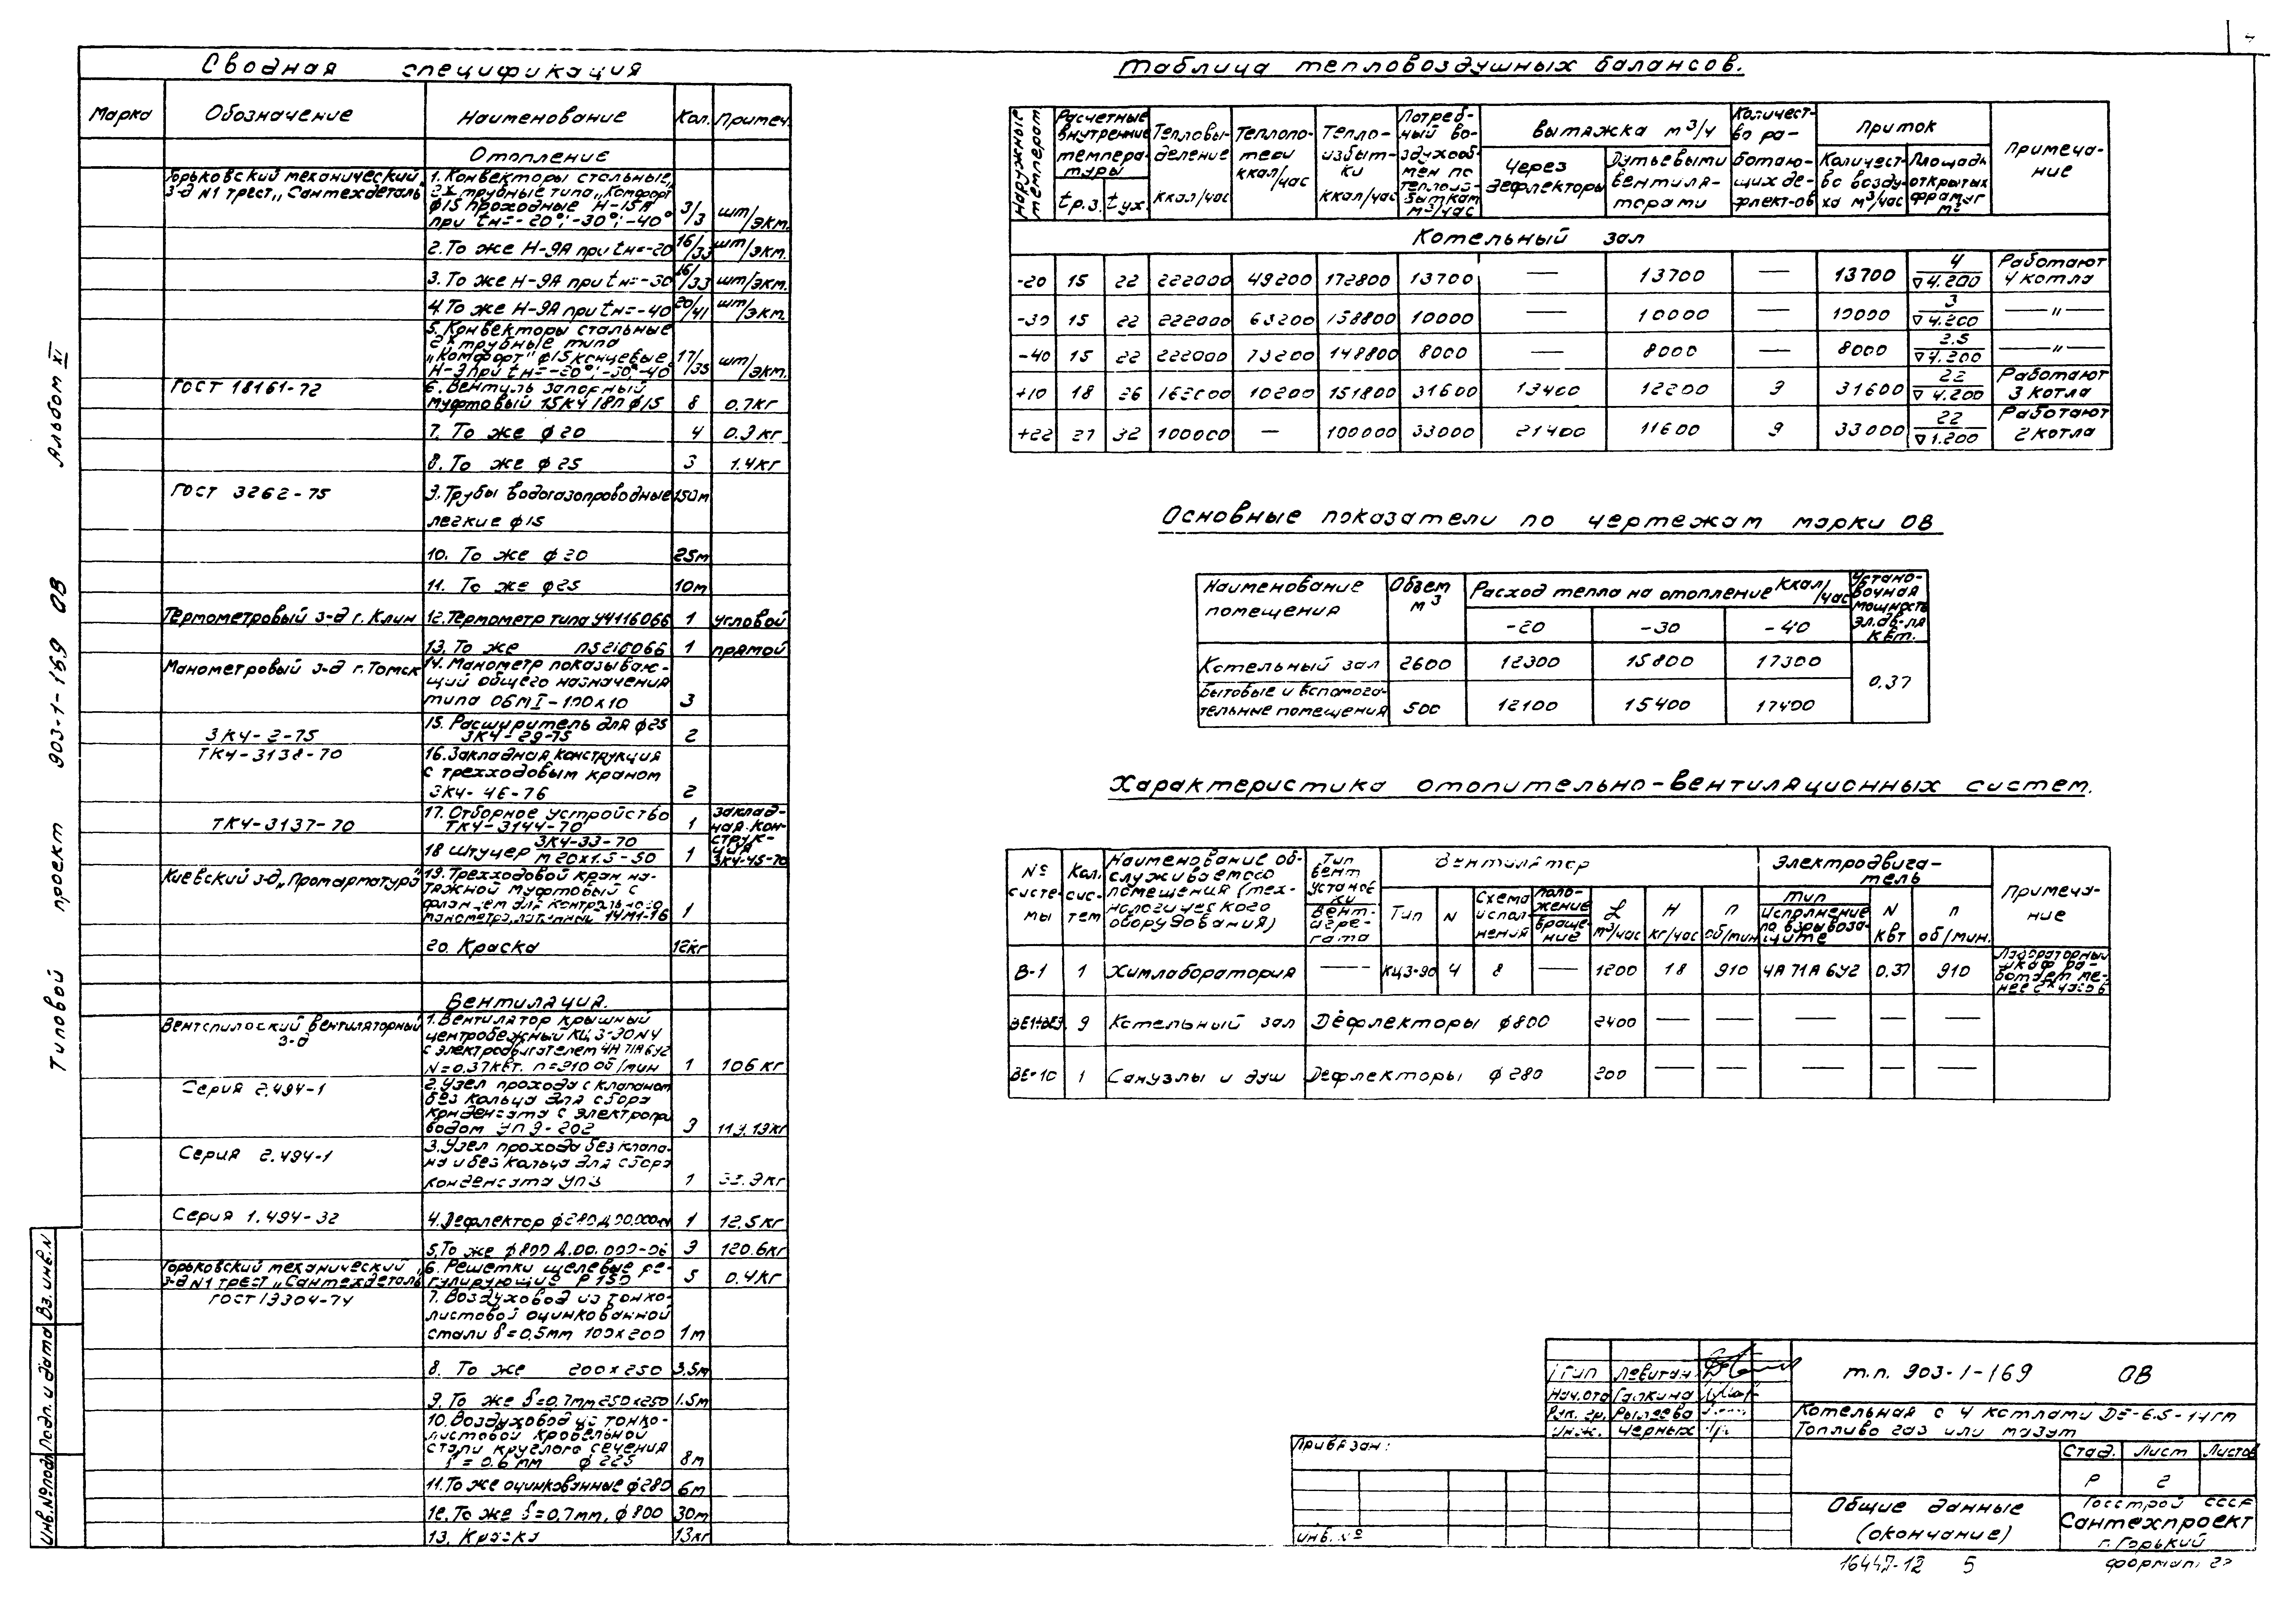 Сводная спецификация
Марка Обозначение Наименование Кол. Примеч.
Отопление
Горьковский механический з-д N1 трест „Сантехдеталь"
1. Конвекторы стальные,
2х трубные типа „Комфорт"
ф15 проходные Н-15А
при tн=-20°; -30°; -40° 3/3 шт/экм.
2. То же Н-9А при tн=-20 16/33 шт/экм.
3. То же Н-9А при tн=-30 16/33 шт/экм.
4. То же Н-9А при tн=-40 20/41 шт/экм.
5. Конвекторы стальные
2х трубные типа
„Комфорт" ф15 концевые
Н-9 при tн=-20°; -30°; -40 17/35 шт/экм.
ГОСТ 18161-72 6. Вентиль запорный
муфтовый 15КЧ 18П ф15 8 0.7кг
7. То же ф20 4 0.9кг
8. То же ф25 3 1.4кг
ГОСТ 3262-75 9. Трубы водогазопроводные 150м
легкие ф15
10. То же ф20 25м
11. То же ф25 10м
Термометровый з-д г. Клин 12. Термометр типа У4116066 1 угловой
13. То же П5216066 1 прямой
Манометровый з-д г. Томск 14. Манометр показываю-
щий общего назначения
типа ОБМ1-100х10 3
15. Расширитель для ф25
ЗКЧ-2-75 ЗКЧ-29-75 2
ТКЧ-3138-70 16. Закладная конструкция
с трехходовым краном
ЗКЧ-46-76 2
17. Отборное устройство
ТКЧ-3137-70 ТКЧ-3144-70 1
18 Штуцер ЗКЧ-33-70
М20х1.5-50 1
заклад-
ная кон-
струк-
ция
ЗКЧ-45-70
Киевский з-д „Промарматура" 19. Трехходовой кран на-
тяжной муфтовый с
фланцем для контрольного
манометра латунный 14М1-16 1
20. Краска 12кг
Вентиляция.
Вентспилсский вентиляторный з-д
1. Вентилятор крышный
центробежный КЦ3-90N4
с электродвигателем 4А71А6У2
N=0.37квт. n=910 об/мин 1 106 кг
Серия 2.494-1 2. Узел прохода с клапаном
без кольца для сбора
конденсата с электропри
водом УП9-202 9 119.19кг
Серия 2.494-1 3. Узел прохода без клапа-
на и без кольца для сбора
конденсата УП3 1 33.9кг
Серия 1.494-32 4. Дефлектор ф280 Д00.000-01 1 12.5кг
5. То же ф800 Д.00.000-06 9 120.6кг
Горьковский механический
з-д N1 трест „Сантехдеталь"
6. Решетки щелевые ре-
гулирующие Р150 5 0.4кг
ГОСТ 19904-74 7. Воздуховод из тонко-
листовой оцинкованной
стали δ=0.5мм 100х200 1м
8. То же 200х250 3.5м
9. То же δ=0.7мм 250х250 1.5м
10. Воздуховод из тонко-
листовой кровельной
стали круглого сечения
δ=0.6мм ф225 8м
11. То же оцинкованные ф280 6м
12. То же δ=0.7мм, ф800 30м
13. Краска 13кг
Таблица тепловоздушных балансов.
Наружные температ
Расчетные внутренние темпера-туры tр.з. tух.
Тепловы-деление ккал/час
Теплопо-тери ккал/час
Тепло-избыт-ки ккал/час
Потреб-ный во-здухооб-мен по теплоиз-быткам м3/час
Вытяжка м3/ч
Через дефлекторы
Дутьевыми вентиля-торами
Количест-во ра-ботаю-щих де-флект-ов
Приток
Количест-во возду-ха м3/час
Площадь открытых фрамуг м2
Примеча-ние
Котельный зал
-20 15 22 222000 49200 172800 13700 — 13700 — 13700 4/▽4.200 Работают 4 котла
-30 15 22 222000 63200 158800 10000 — 10000 — 10000 3/▽4.200 —"—
-40 15 22 222000 73200 148800 8000 — 8000 — 8000 2.5/▽4.200 —"—
+10 18 26 162000 10200 151800 31600 19400 12200 9 31600 22/▽4.200 Работают 3 котла
+22 27 32 100000 — 100000 33000 21400 11600 9 33000 22/▽1.200 Работают 2 котла
Основные показатели по чертежам марки ОВ
Наименование помещения Объем м3 Расход тепла на отопление ккал/час Устано-вочная мощность эл.дв-ля квт.
-20 -30 -40
Котельный зал 2600 12300 15800 17300 0.37
Бытовые и вспомога-
тельные помещения 500 12100 15400 17400
Характеристика отопительно-вентиляционных систем.
№ систе-мы
Кол. сис-тем
Наименование об-служиваемого помещения (тех-нологического оборудования)
Тип вент установ ки Вент-агре-гата
Вентилятор
Тип N Схема испол-нения Поло-жение Враще-ние L м3/час Н кг/час n об/мин
Электродвига-тель
Тип Исполнение по взрывоза-щите N квт n об/мин.
Примеча-ние
В-1 1 Химлаборатория — КЦ3-90 4 8 — 1200 18 910 4А71А6У2 0.37 910 Лабораторный шкаф ра-ботает ме-нее 2х часов
ВЕ1÷ВЕ9 9 Котельный зал Дефлекторы ф800 2400 — — — — —
ВЕ-10 1 Санузлы и душ Дефлекторы ф280 200 — — — — —
Альбом XI
Типовой проект 903-1-169 ОВ
Инв.№подл Подп. и дата Вз. инв.N
ГИП Левитан
Нач.отд Галкина
Рук. гр. Рылеева
Инж. Черных
т.п. 903-1-169 ОВ
Котельная с 4 котлами ДЕ-6.5-14ГМ
Топливо газ или мазут
Стад. Лист Листов
Р 2
Общие данные
(окончание)
Госстрой СССР
Сантехпроект
г. Горький
Привязан:
Инв. №
16447-12 5
формат 22